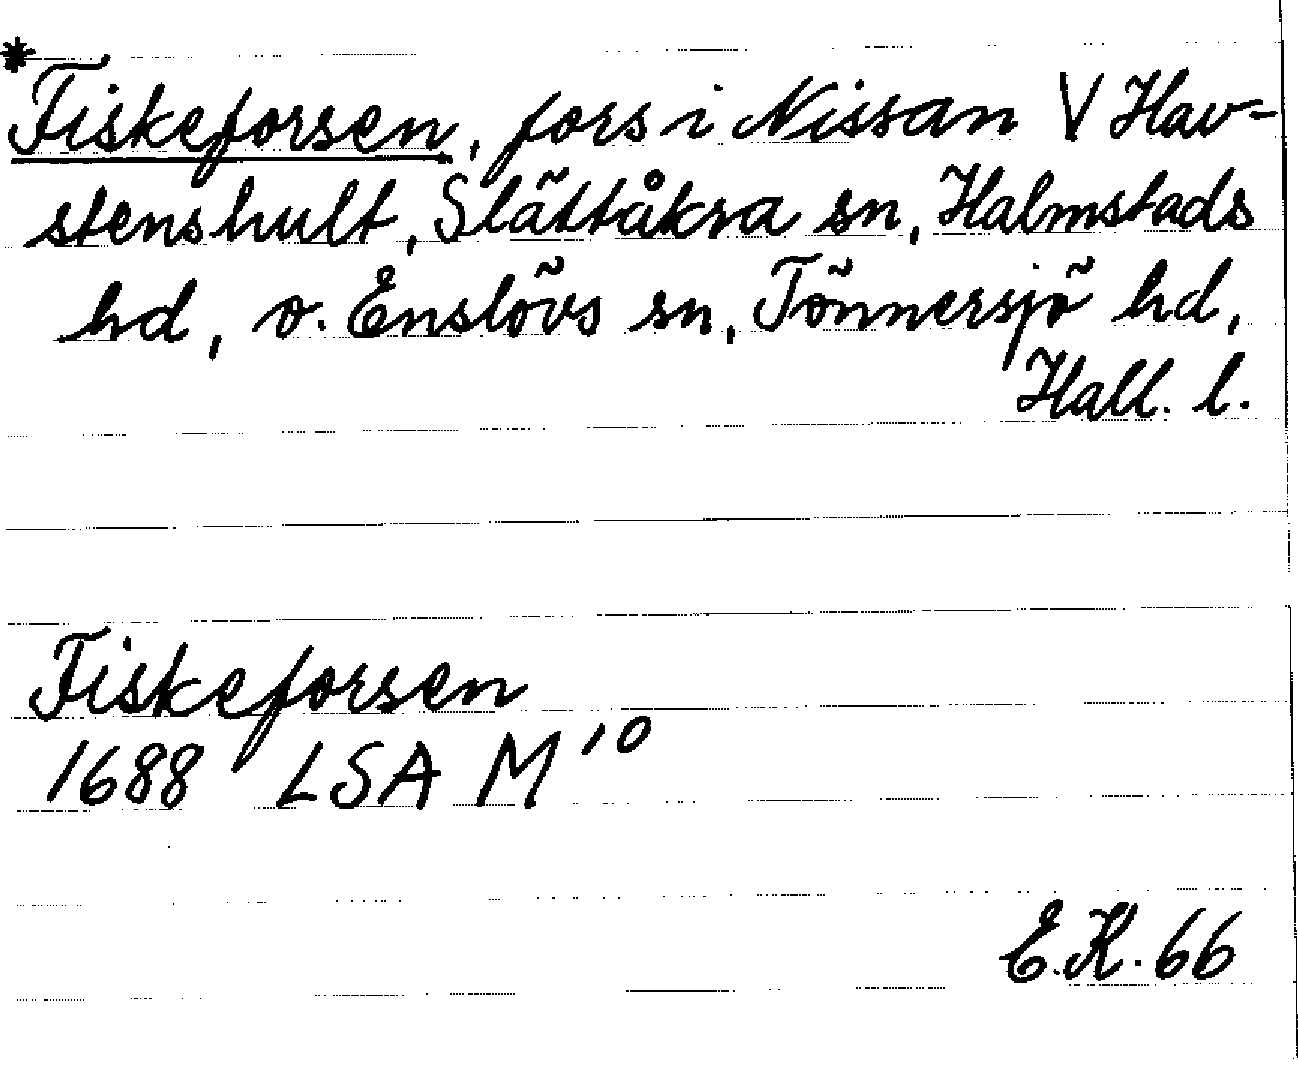 *Fiskeforsen, fors i Nissan V Hav-
stenshult, Slättåkra sn, Halmstads
hd, o. Enslövs sn, Tönnersjö hd,
Hall. l.
Fiskeforsen
1688 LSA M'10
E.K. 66